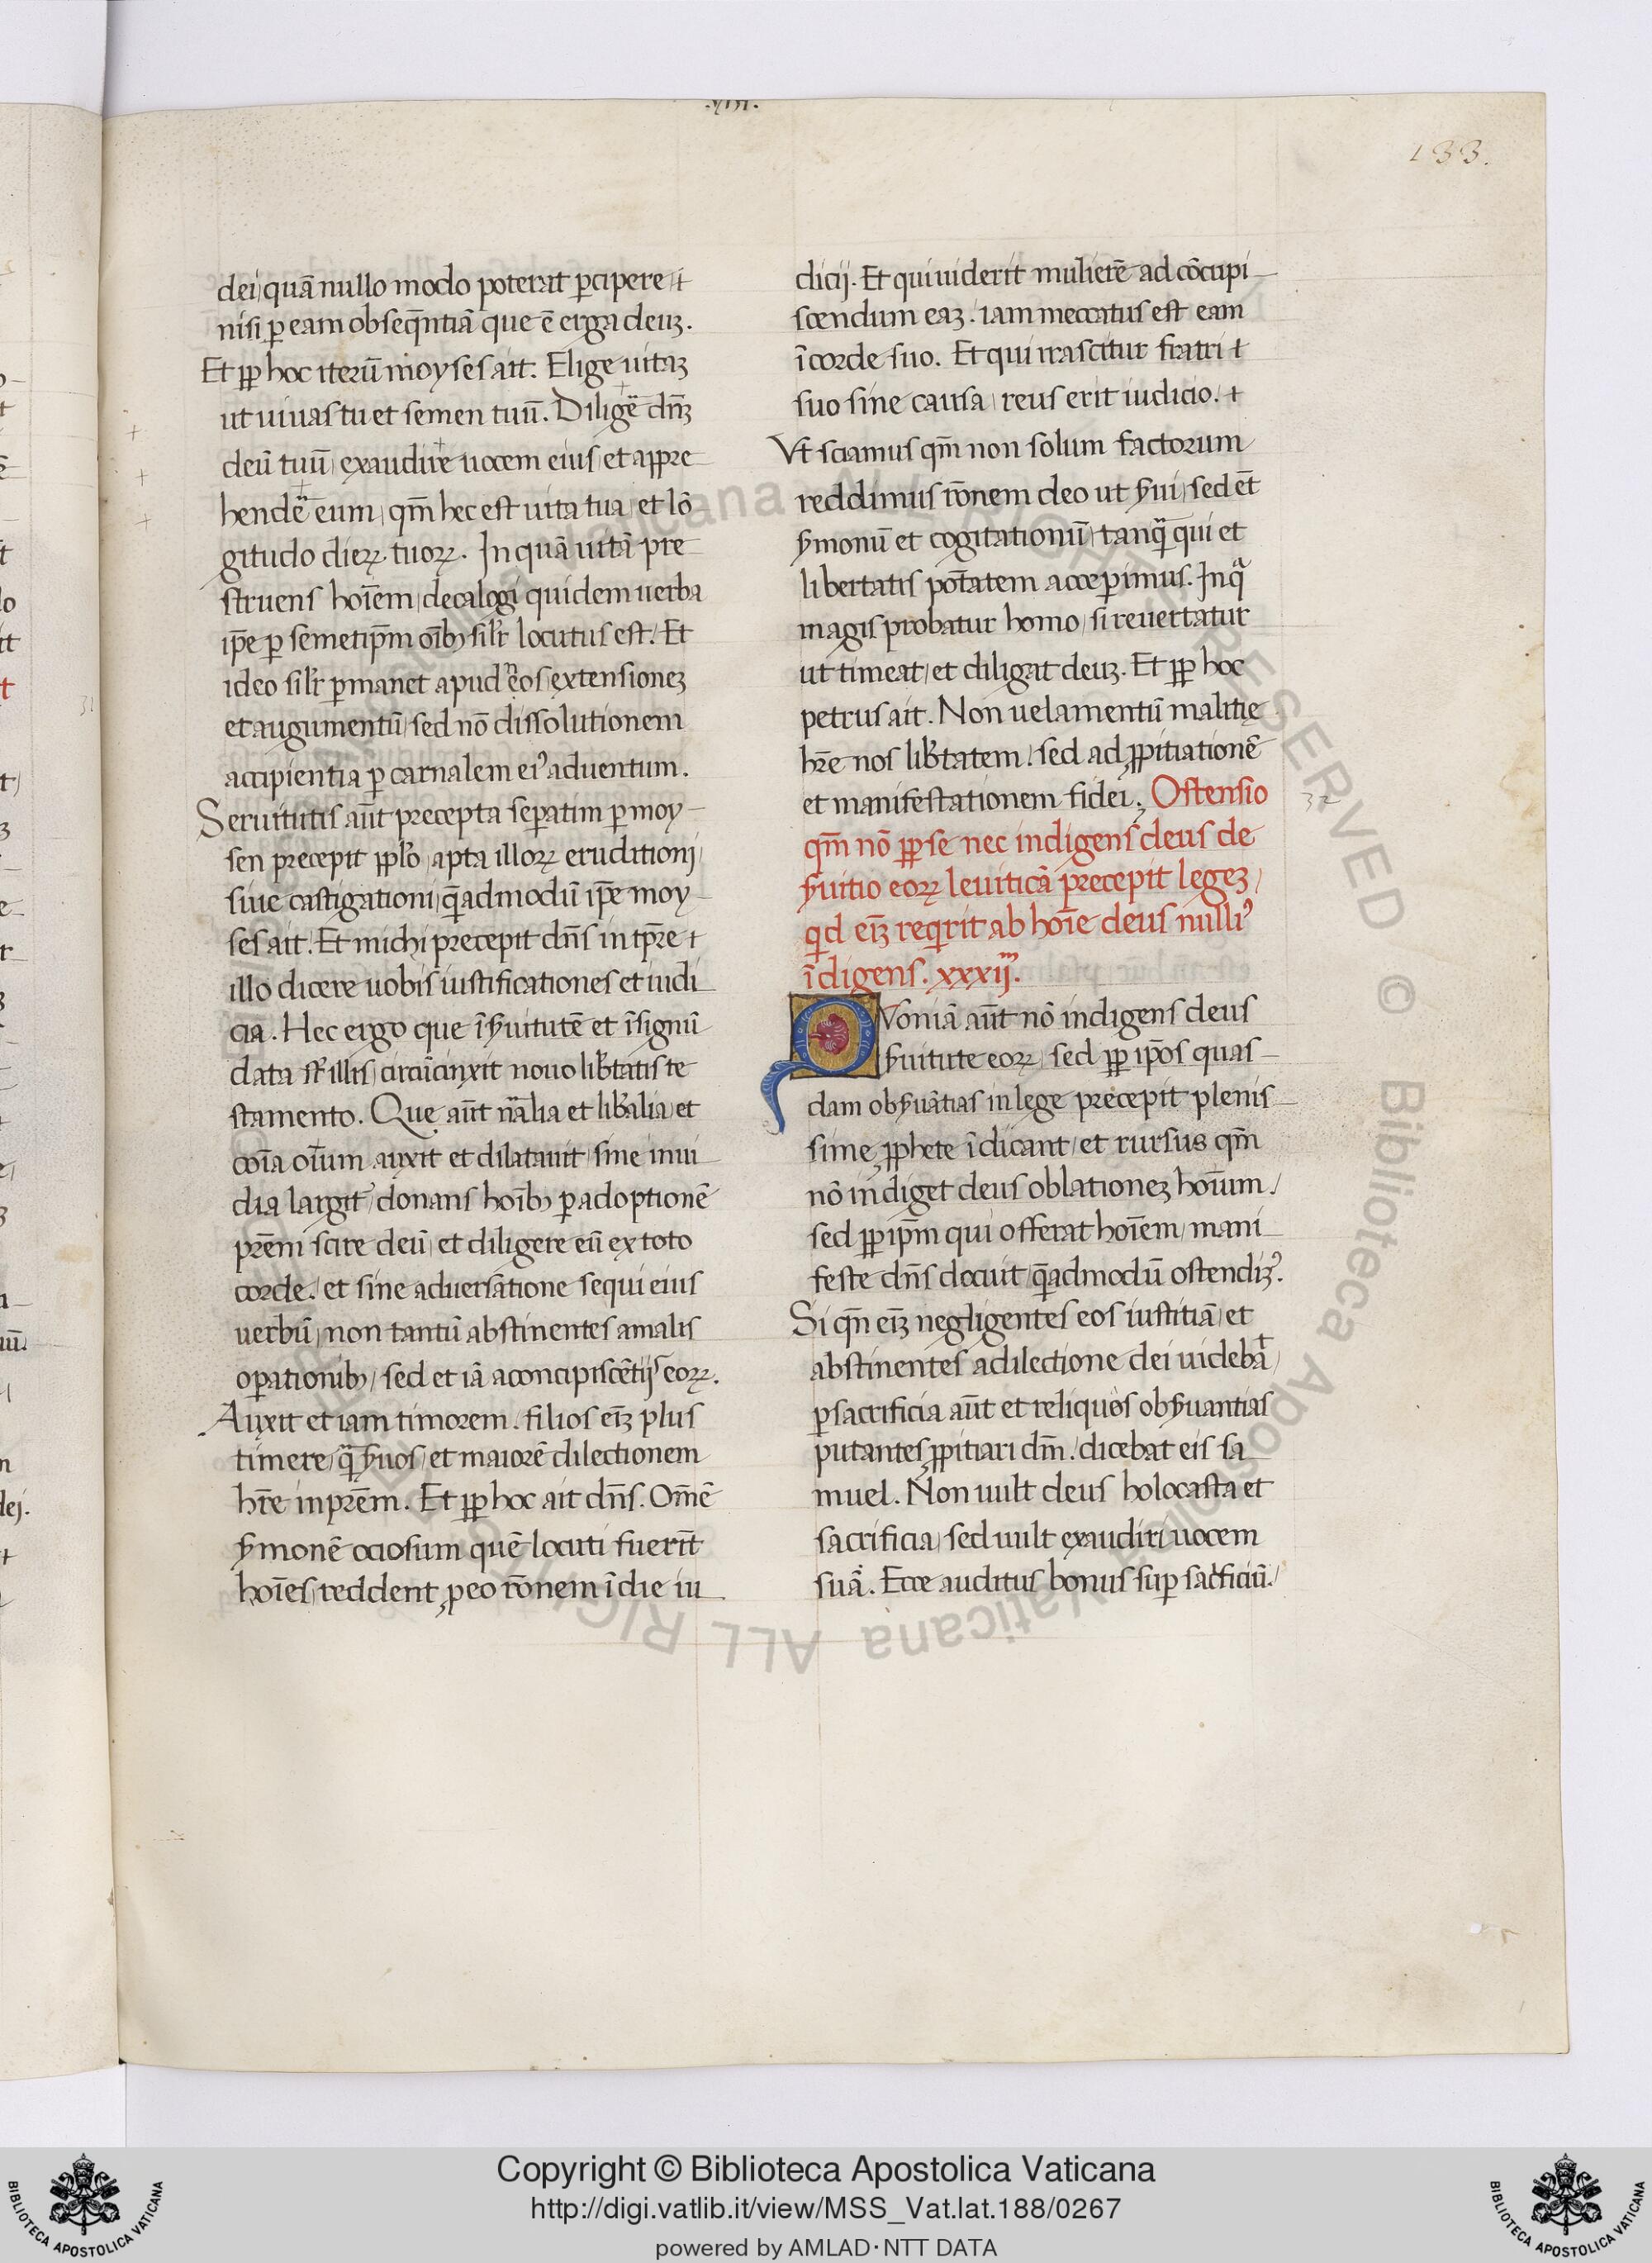 .XIII.
133.
dei quā nullo modo poterat ꝑcipere
nisi ꝑ eam obseq̄ntiā que ē erga deuꝫ.
Et ꝓp hoc iterū moyses ait. Elige uitaꝫ
ut uiuas tu et semen tuū. Diligē dn̄ꝫ
deū tuū exaudire uocem eius et appre
hendē eum qm̄ hec est uita tua et lō
gitudo dieꝝ tuoꝝ. In quā uitā pre
struens hoīem decalogi quidem uerba
ip̄e ꝑ semetip̄m oībꝫ silr̄ locutus est. Et
ideo silr̄ ꝑmanet apud eos extensioneꝫ
et augumentū sed nō dissolutionem
accipientia ꝑ carnalem eiꝰ aduentum.
Seruitutis aūt precepta seꝑatim ꝑ moy
sen precepit pplō apta illoꝝ eruditioni
siue castigationi q̄admodū ip̄e moy
ses ait. Et michi precepit dn̄s in tp̄re
illo dicere uobis iustificationes et iudi
cia. Hec ergo que ī ẜuitutē et ī signū
data st̄ illis circūcinxit nouo lib̄tatis te
stamento. Que aūt nālia et lib̄alia et
coīa oīum auxit et dilatauit sine inui
dia largit̉ donans hoībꝫ ꝑ adoptionē
pr̄em scire deū et diligere eū ex toto
corde et sine aduersatione sequi eius
uerbū non tantū abstinentes a malis
oꝑationibꝫ sed et iā a concipiscētijs eoꝝ.
Auxit et iam timorem. filios eīꝫ plus
timere q̄ ẜuos et maiorē dilectionem
hr̄e in pr̄em. Et ꝓp hoc ait dn̄s. Om̄ē
ẜmonē ociosum quē locuti fuerīt
hoīes reddent ꝓ eo rōnem ī die iu
dicij. Et qui uiderit mulierē ad cōcupi
scendum eaꝫ. iam meccatus est eam
ī corde suo. Et qui irascitur fratri
suo sine causa reus erit iudicio.
Vt sciamus qm̄ non solum factorum
reddimus rōnem deo ut ẜui sed et̄
ẜmonū et cogitationū tanq̄ qui et
libertatis pot̄atem accepimus. In qͣ
magis probatur homo si reuertatur
ut timeat et diligat deuꝫ. Et ꝓp hoc
petrus ait. Non uelamentū malitię
hr̄e nos lib̄tatem sed ad ꝓpitiationē
et manifestationem fidei. Ostensio
qm̄ nō ꝓp se nec indigens deus de
ẜuitio eoꝝ leuiticā precepit legeꝫ
qͥd eīꝫ reqͥrit ab hoīe deus nulliꝰ
īdigens. xxxij.
32
Quoniā aūt nō indigens deus
ẜuitute eoꝝ sed ꝓp ip̄os quas
dam obẜuātias in lege precepit plenis
sime ꝓphete īdicant et rursus qm̄
nō indiget deus oblationeꝫ hoīum
sed ꝓp ip̄m qui offerat hoīem mani
feste dn̄s docuit q̄admodū ostendiꝫꝰ.
Si qn̄ eīꝫ negligentes eos iustitiā et
abstinentes a dilectione dei uidebāt
ꝑ sacrificia aūt et reliquos obẜuantias
putantes ꝓpitiari dm̄. dicebat eis sa
muel. Non uult deus holocasta et
sacrificia sed uult exaudiri uocem
suā. Ecce auditus bonus suꝑ sac̄ficiū.
Copyright © Biblioteca Apostolica Vaticana
http://digi.vatlib.it/view/MSS_Vat.lat.188/0267
powered by AMLAD·NTT DATA
BIBLIOTECA APOSTOLICA VATICANA
BIBLIOTECA APOSTOLICA VATICANA